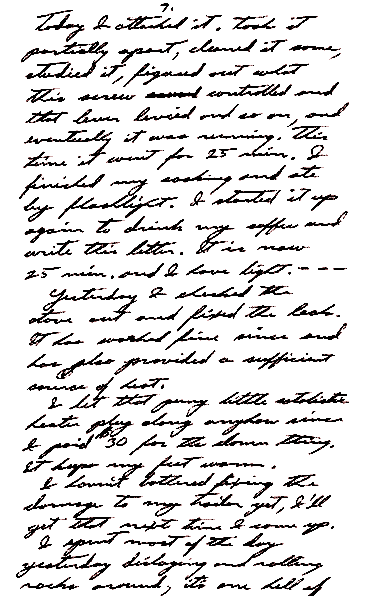 7.
Today I attacked it. Took it
partially apart, cleaned it some,
studied it, figured out what
this screw controlled and
that lever levied and so on, and
eventually it was running. This
time it went for 25 min. I
finished my cooking and ate
by flashlight. I started it up
again to drink my coffee and
write this letter. It is now
25 min. and I have light. - - -
Yesterday I checked the
stove out and fixed the leak.
It has worked fine since and
has also provided a sufficient
source of heat.
I let that puny little catalytic
heater plug along anyhow since
I paid $30 for the damn thing.
It keeps my feet warm.
I haven't bothered fixing the
damage to my trailer yet, I'll
get that next time I come up.
I spent most of the day
yesterday dislodging and rolling
rocks around, it's one hell of